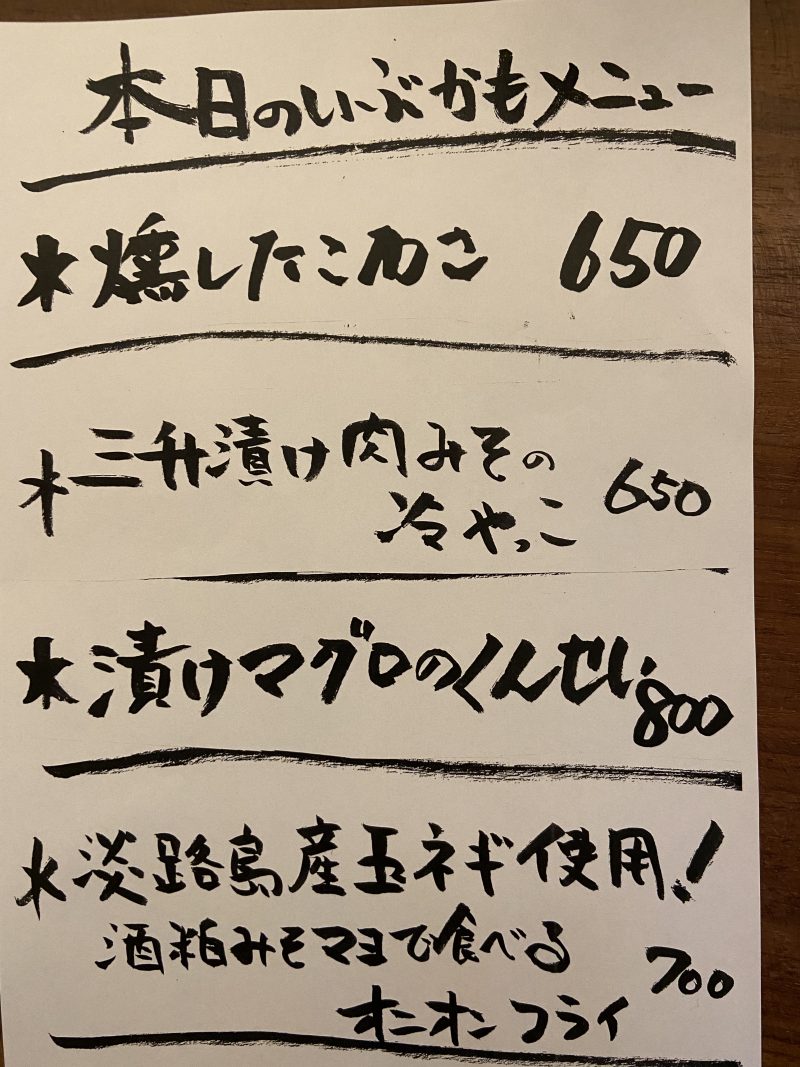 本日のいぶかもメニュー
*燻したこわさ 650
*三升漬け肉みその
冷やっこ 650
*漬けマグロのくんせい 800
*淡路島産玉ネギ使用!
酒粕みそマヨで食べる
オニオンフライ 700